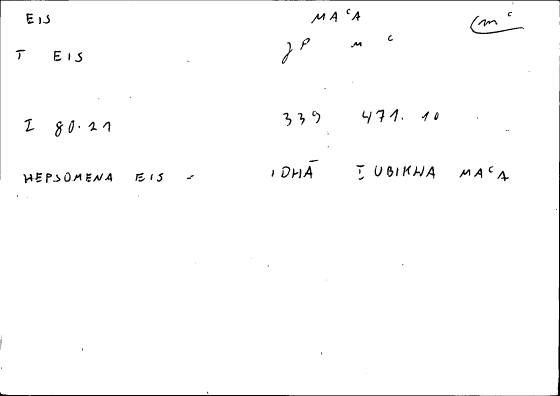 EIS MAᶜA mᶜ
T EIS JP M C
I 80.21 339 471.10
НЕРЅОМЕNА EIS - IDHĀ I UBIKHA MAᶜA